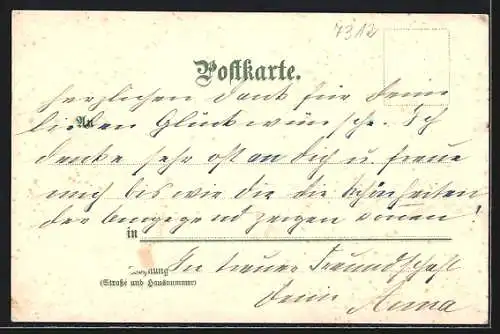 7312
Postkarte.
Herzlichen Dank für Deine
lieben Glückwünsche. Ich
An
denke sehr oft an Dich u. freue
mich bis wir Dir die Schönheiten
der Umgegend zeigen
in
In treuer Freundschaft
(Straße und Hausnummer)
Deine Anna